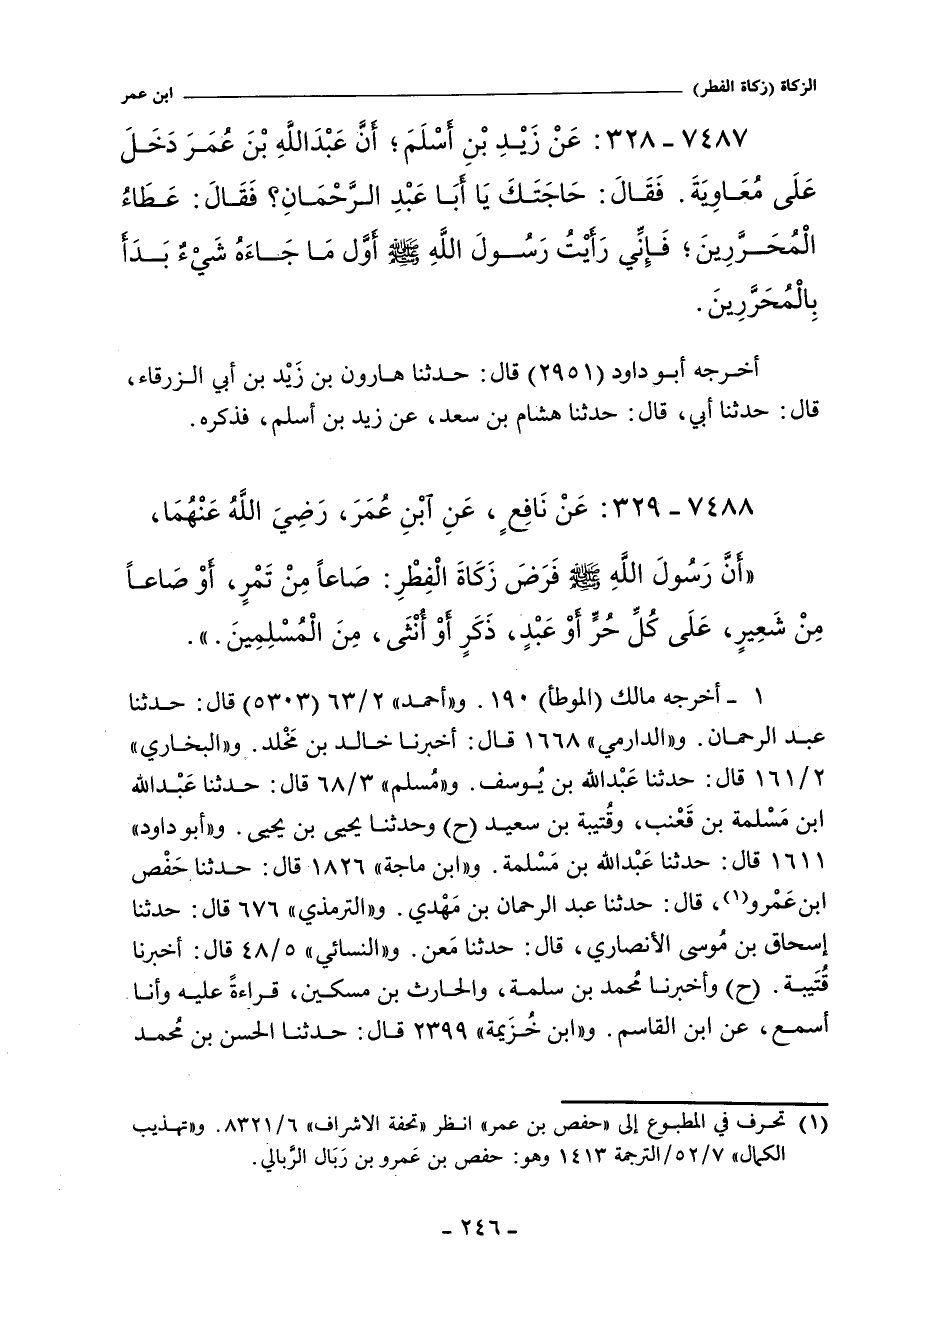 الزكاة (زكاة الفطر) ابن عمر
٧٤٨٧ - ٣٢٨: عَنْ زَيْدِ بْنِ أَسْلَمَ؛ أَنَّ عَبْدَاللَّهِ بْنَ عُمَرَ دَخَلَ
عَلَى مُعَاوِيَةَ. فَقَالَ: حَاجَتَكَ يَا أَبَا عَبْدِ الرَّحْمَانِ؟ فَقَالَ: عَطَاءُ
الْمُحَرَّرِينَ؛ فَإِنِّي رَأَيْتُ رَسُولَ اللَّهِ ﷺ أَوَّل مَا جَاءَهُ شَيْءٌ بَدَأَ
بِالْمُحَرَّرِينَ.
أخرجه أبو داود (٢٩٥١) قال: حدثنا هارون بن زَيْد بن أبي الزرقاء،
قال: حدثنا أبي، قال: حدثنا هشام بن سعد، عن زيد بن أسلم، فذكره.
٧٤٨٨ - ٣٢٩: عَنْ نَافِعٍ، عَنِ آبْنِ عُمَرَ، رَضِيَ اللَّهُ عَنْهُمَا،
«أَنَّ رَسُولَ اللَّهِ ﷺ فَرَضَ زَكَاةَ الْفِطْرِ: صَاعاً مِنْ تَمْرٍ، أَوْ صَاعاً
مِنْ شَعِيرٍ، عَلَى كُلِّ حُرٍّ أَوْ عَبْدٍ، ذَكَرٍ أَوْ أُنْثَى، مِنَ الْمُسْلِمِينَ.».
١ - أخرجه مالك (الموطأ) ١٩٠. و«أحمد» ٦٣/٢ (٥٣٠٣) قال: حدثنا
عبد الرحمان. و«الدارمي» ١٦٦٨ قال: أخبرنا خالد بن مَخْلد. و«البخاري»
١٦١/٢ قال: حدثنا عَبْدالله بن يُوسف. و«مُسلم» ٦٨/٣ قال: حدثنا عَبْدالله
ابن مَسْلمة بن قَعْنب، وقُتيبة بن سعيد (ح) وحدثنا يحيى بن يحيى. و«أبو داود»
١٦١١ قال: حدثنا عَبْدالله بن مَسْلمة. و«ابن ماجة» ١٨٢٦ قال: حدثنا حَفْص
ابن عَمْرو(١)، قال: حدثنا عبد الرحمان بن مَهْدي. و«الترمذي» ٦٧٦ قال: حدثنا
إسحاق بن مُوسى الأنصاري، قال: حدثنا مَعن. و«النسائي» ٤٨/٥ قال: أخبرنا
قُتَيبة. (ح) وأخبرنا مُحمد بن سلمة، والحارث بن مسكين، قراءةً عليه وأنا
أسمع، عن ابن القاسم. و«ابن خُزَيمة» ٢٣٩٩ قال: حدثنا الحسن بن مُحمد
(١) تحرف في المطبوع إلى «حفص بن عمر» انظر «تحفة الاشراف» ٨٣٢١/٦. و«تهذيب
الكمال» ٥٢/٧/الترجمة ١٤١٣ وهو: حفص بن عَمرو بن رَبَال الرَّبالي.
- ٢٤٦ -